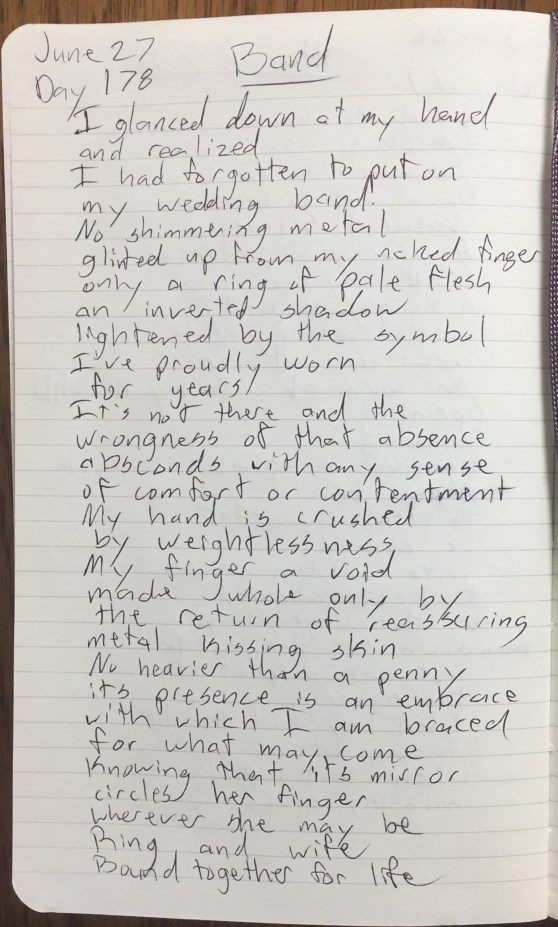 June 27
Day 178
Band
I glanced down at my hand
and realized
I had forgotten to put on
my wedding band.
No shimmering metal
glinted up from my naked finger
only a ring of pale flesh
an inverted shadow
lightened by the symbol
I've proudly worn
for years
It's not there and the
wrongness of that absence
absconds with any sense
of comfort or contentment
My hand is crushed
by weightlessness
My finger a void
made whole only by
the return of reassuring
metal kissing skin
No heavier than a penny
its presence is an embrace
with which I am braced
for what may come
Knowing that it's mirror
circles her finger
wherever she may be
Ring and wife
Bound together for life